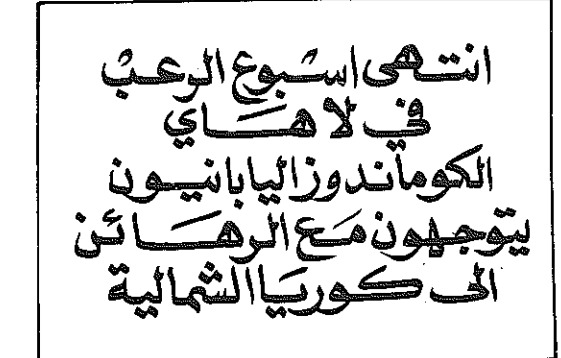 انتهى اسبوع الرعب
في لاهاي
الكوماندوز اليابانيون
يتوجهون مع الرهائن
الى كوريا الشمالية